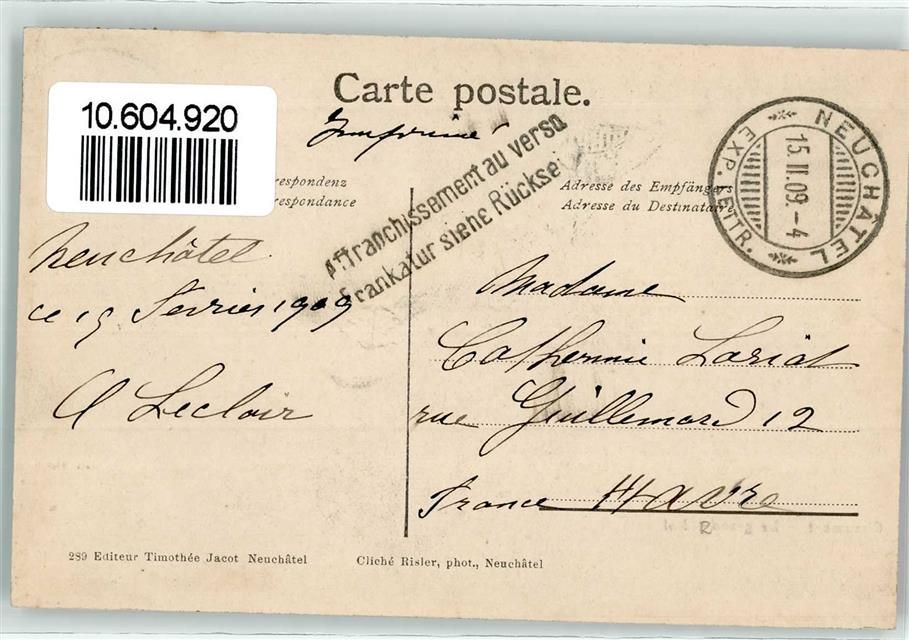 Carte postale.
10.604.920
Imprimé
Affranchissement au verso
Frankatur siehe Rückse
NEUCHÂTEL
15.II.09.-4
EXP. LETTR.
respondenz
respondance
Adresse des Empfängers
Adresse du Destinataire
Neuchâtel
ce 15 Fevrier 1909
A Leclair
Madame
Catherine Loriot
rue Guillemard 12
France Havre
R
289 Editeur Timothée Jacot Neuchâtel
Cliché Risler, phot., Neuchâtel